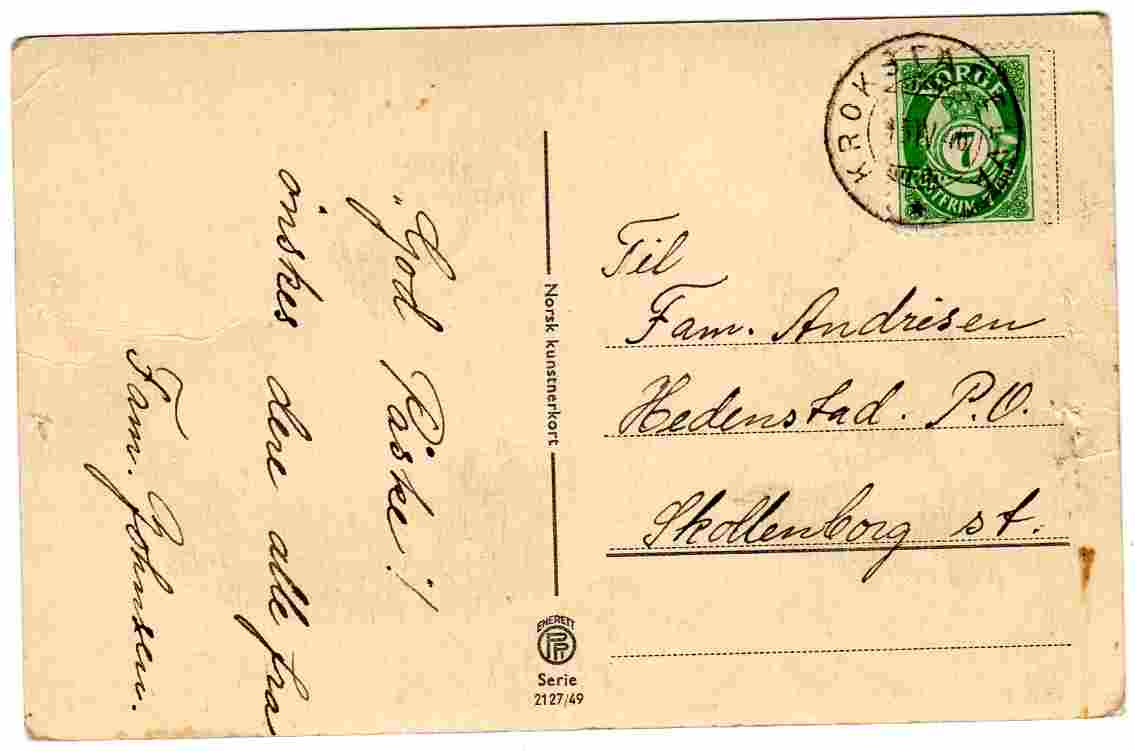 "God Påske!"
ønskes dere alle fra
Fam. Johnsen.
Norsk kunstnerkort
ENERETT
Serie
2127/49
NORGE
7
Til
Fam. Andrisen
Hedenstad. P.O.
Skollenborg st.